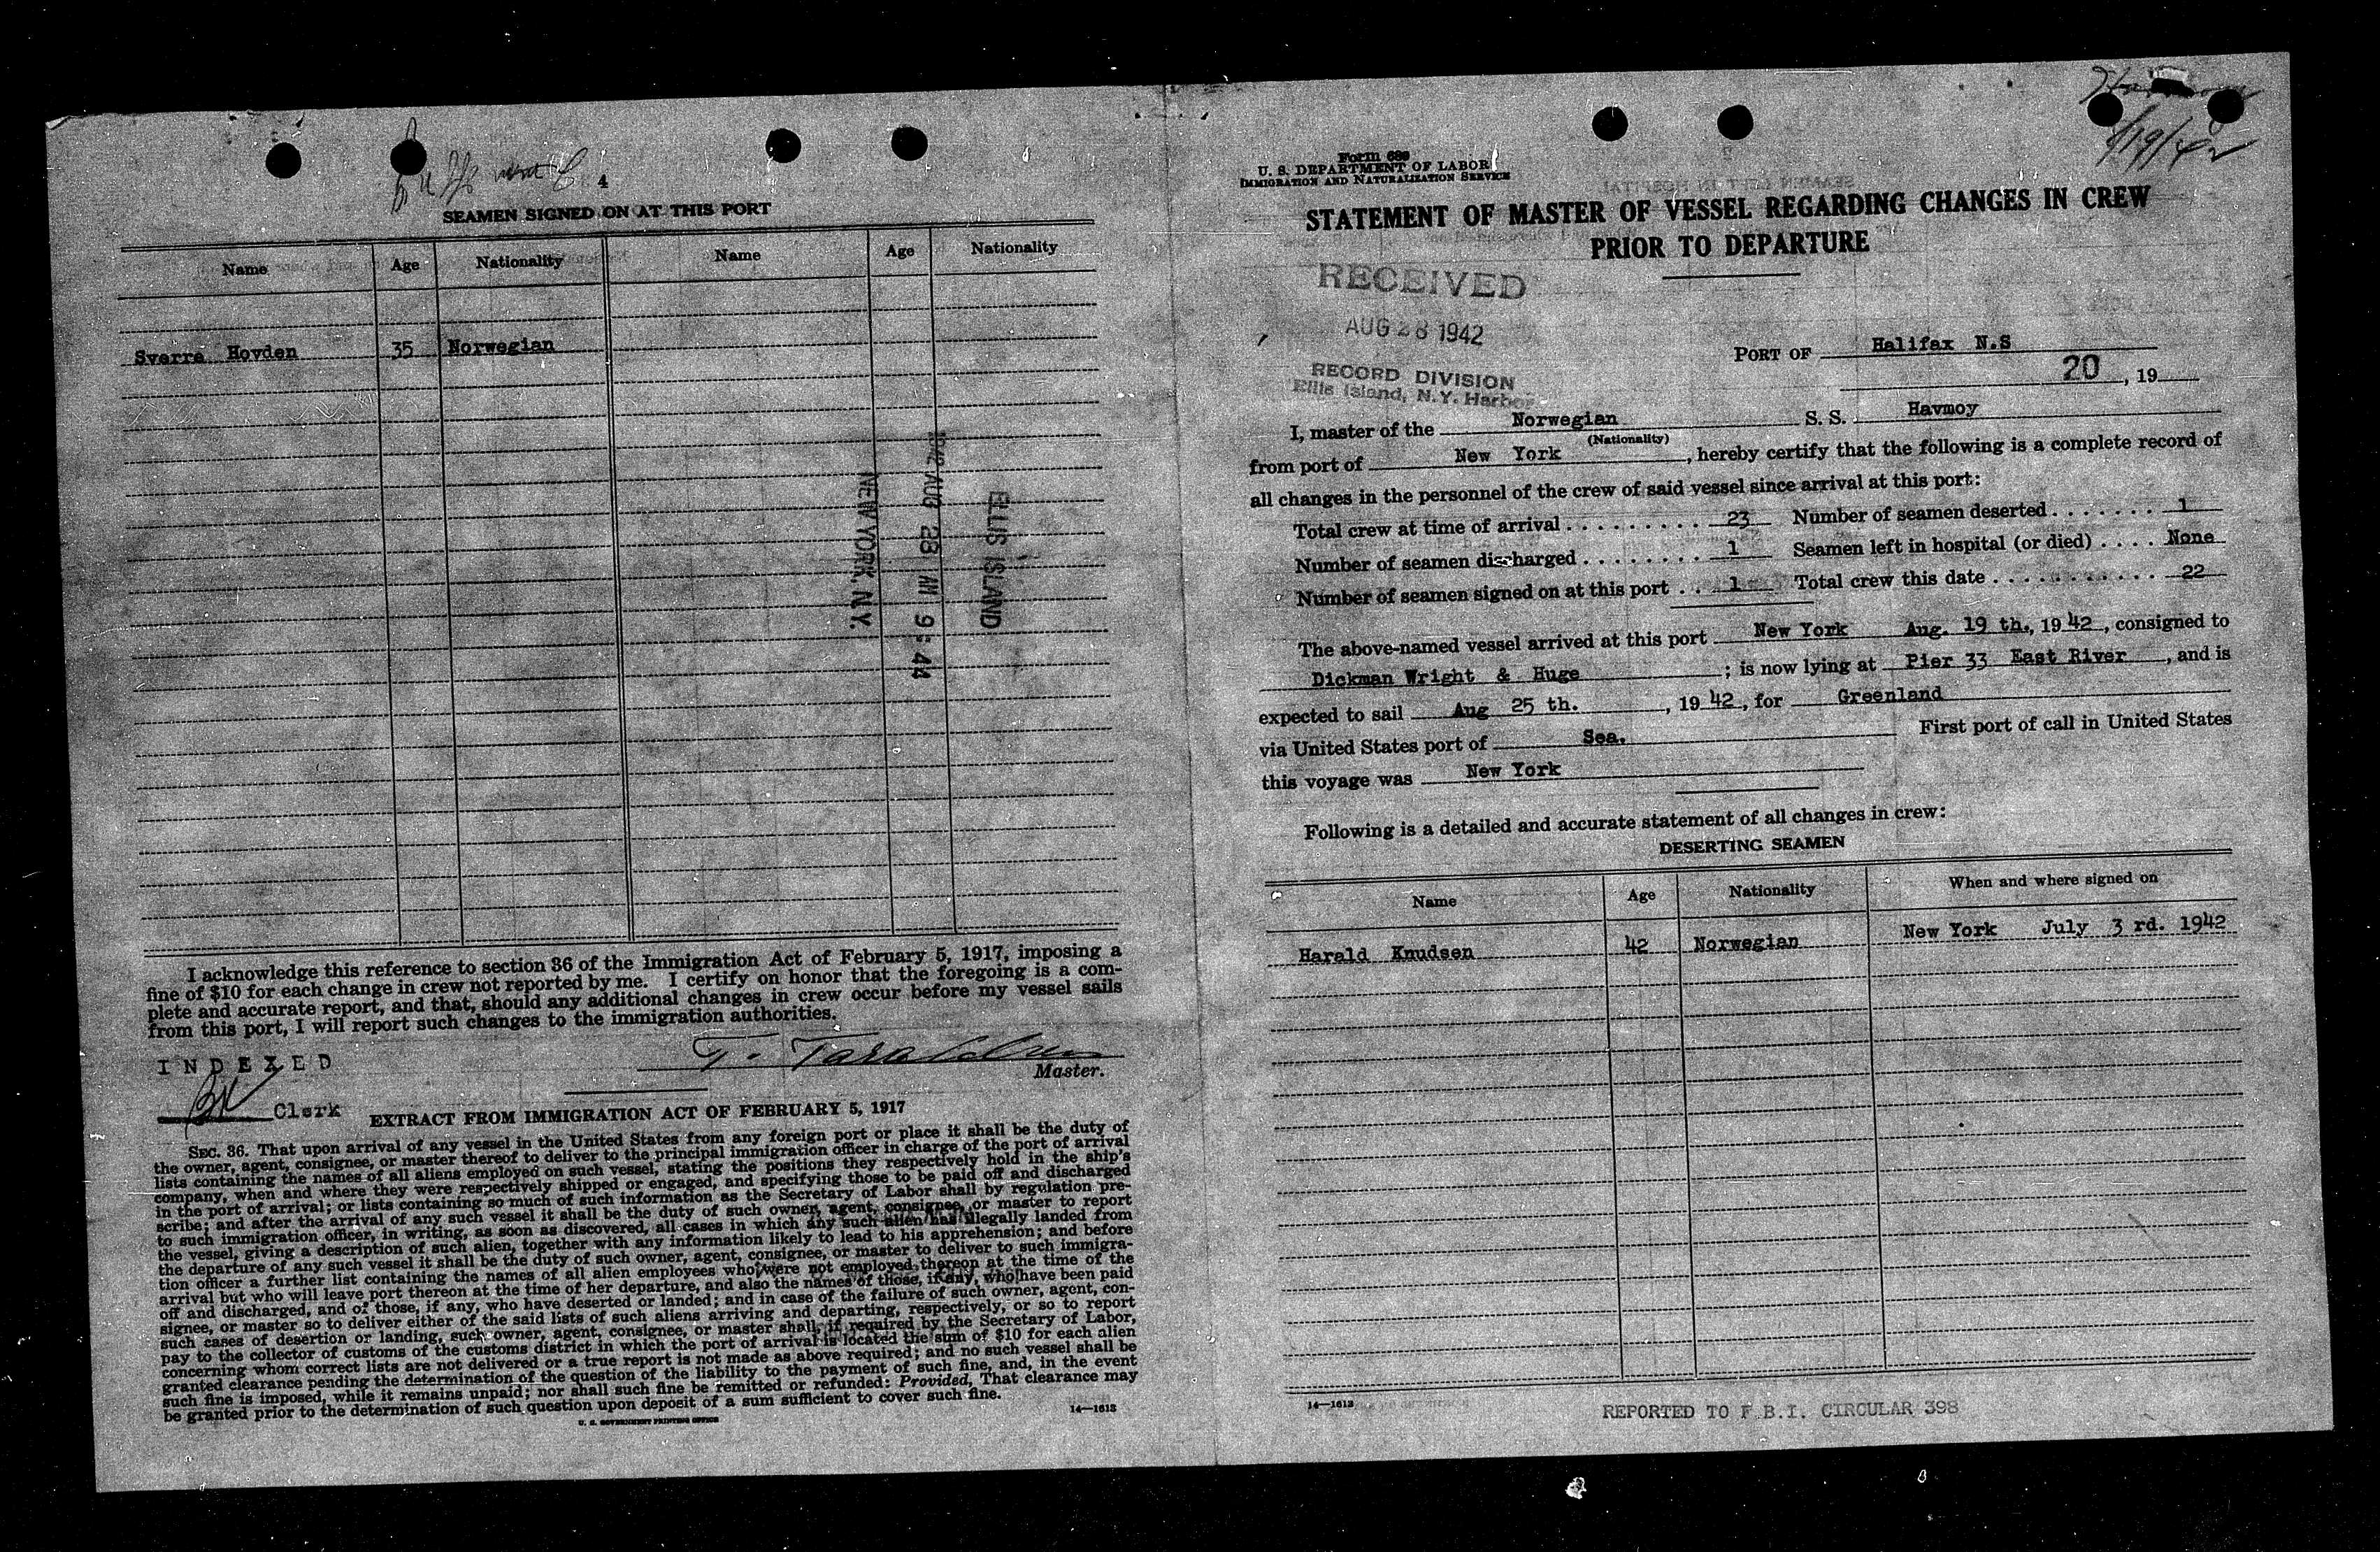 4
SEAMEN SIGNED ON AT THIS PORT
Name Age Nationality Name Age Nationality
Sverre Hovden 35 Norwegian
ELLIS ISLAND
1942 AUG 28 AM 9:44
NEW YORK, N.Y.
I acknowledge this reference to section 36 of the Immigration Act of February 5, 1917, imposing a
fine of $10 for each change in crew not reported by me. I certify on honor that the foregoing is a com-
plete and accurate report, and that, should any additional changes in crew occur before my vessel sails
from this port, I will report such changes to the immigration authorities.
INDEXED
T. Taraldsen
Master.
Clerk
EXTRACT FROM IMMIGRATION ACT OF FEBRUARY 5, 1917
SEC. 36. That upon arrival of any vessel in the United States from any foreign port or place it shall be the duty of
the owner, agent, consignee, or master thereof to deliver to the principal immigration officer in charge of the port of arrival
lists containing the names of all aliens employed on such vessel, stating the positions they respectively hold in the ship's
company, when and where they were respectively shipped or engaged, and specifying those to be paid off and discharged
in the port of arrival; or lists containing so much of such information as the Secretary of Labor shall by regulation pre-
scribe; and after the arrival of any such vessel it shall be the duty of such owner, agent, consignee, or master to report
to such immigration officer, in writing, as soon as discovered, all cases in which any such alien has illegally landed from
the vessel, giving a description of such alien, together with any information likely to lead to his apprehension; and before
the departure of any such vessel it shall be the duty of such owner, agent, consignee, or master to deliver to such immigra-
tion officer a further list containing the names of all alien employees who were not employed thereon at the time of the
arrival but who will leave port thereon at the time of her departure, and also the names of those, if any, who have been paid
off and discharged, and of those, if any, who have deserted or landed; and in case of the failure of such owner, agent, con-
signee, or master so to deliver either of the said lists of such aliens arriving and departing, respectively, or so to report
such cases of desertion or landing, such owner, agent, consignee, or master shall, if required by the Secretary of Labor,
pay to the collector of customs of the customs district in which the port of arrival is located the sum of $10 for each alien
concerning whom correct lists are not delivered or a true report is not made as above required; and no such vessel shall be
granted clearance pending the determination of the question of the liability to the payment of such fine, and, in the event
such fine is imposed, while it remains unpaid; nor shall such fine be remitted or refunded: Provided, That clearance may
be granted prior to the determination of such question upon deposit of a sum sufficient to cover such fine.
U. S. GOVERNMENT PRINTING OFFICE
14—1613
Form 689
U. S. DEPARTMENT OF LABOR
IMMIGRATION AND NATURALIZATION SERVICE
8/19/42
STATEMENT OF MASTER OF VESSEL REGARDING CHANGES IN CREW
PRIOR TO DEPARTURE
RECEIVED
AUG 28 1942
RECORD DIVISION
Ellis Island, N.Y. Harbor
PORT OF Halifax N.S
20, 19
I, master of the Norwegian S. S. Havmoy
(Nationality)
from port of New York, hereby certify that the following is a complete record of
all changes in the personnel of the crew of said vessel since arrival at this port:
Total crew at time of arrival . . . . . . . . . . 23 Number of seamen deserted . . . . . . . 1
Number of seamen discharged . . . . . . . . 1 Seamen left in hospital (or died) . . . . None
Number of seamen signed on at this port . . 1 Total crew this date . . . . . . . . . . . . 22
The above-named vessel arrived at this port New York Aug. 19 th., 19 42, consigned to
Dickman Wright & Huge ; is now lying at Pier 33 East River, and is
expected to sail Aug 25 th., 19 42, for Greenland
via United States port of Sea. First port of call in United States
this voyage was New York
Following is a detailed and accurate statement of all changes in crew:
DESERTING SEAMEN
Name Age Nationality When and where signed on
Harald Knudsen 42 Norwegian New York July 3 rd. 1942
14—1613
REPORTED TO F.B.I. CIRCULAR 398